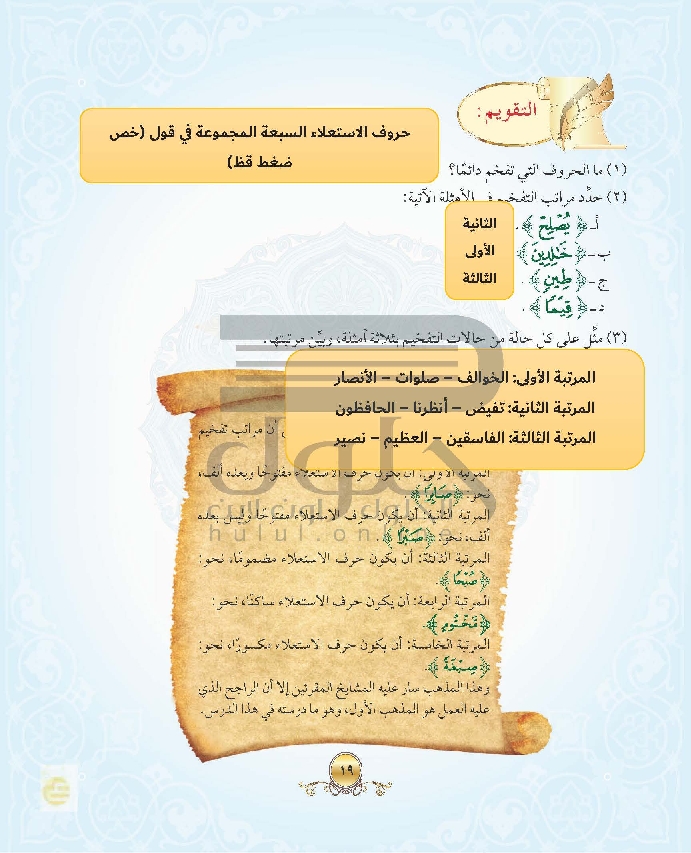 التقويم:
حروف الاستعلاء السبعة المجموعة في قول (خص
ضغط قظ)
(١) ما الحروف التي تفخم دائمًا؟
(٢) حدِّد مراتب التفخيم في الأمثلة الآتية:
أ- ﴿يُصْلِحْ﴾. الثانية
ب- ﴿خَٰلِدِينَ﴾ الأولى
ج- ﴿طِينٍ﴾. الثالثة
د- ﴿قِيَمًا﴾
(٣) مثِّل على كل حالة من حالات التفخيم بثلاثة أمثلة، وبيِّن مرتبتها.
المرتبة الأولى: الخوالف – صلوات – الأنصار
المرتبة الثانية: تفيض – أنظرنا – الحافظون
المرتبة الثالثة: الفاسقين – العظيم – نصير
أن مراتب تفخيم
المرتبة الأولى: أن يكون حرف الاستعلاء مفتوحًا وبعده ألف،
نحو: ﴿صَابِرًا﴾.
المرتبة الثانية: أن يكون حرف الاستعلاء مفتوحًا وليس بعده
ألف، نحو: ﴿صَبْرًا﴾.
المرتبة الثالثة: أن يكون حرف الاستعلاء مضمومًا، نحو:
﴿صُبْحًا﴾.
المرتبة الرابعة: أن يكون حرف الاستعلاء ساكنًا، نحو:
﴿مَخْتُومٍ﴾.
المرتبة الخامسة: أن يكون حرف الاستعلاء مكسورًا، نحو:
﴿صِبْغَةَ﴾.
وهذا المذهب سار عليه المشايخ المقرئين إلا أن الراجح الذي
عليه العمل هو المذهب الأول، وهو ما درسته في هذا الدرس.
حلول
hulul.online
١٩